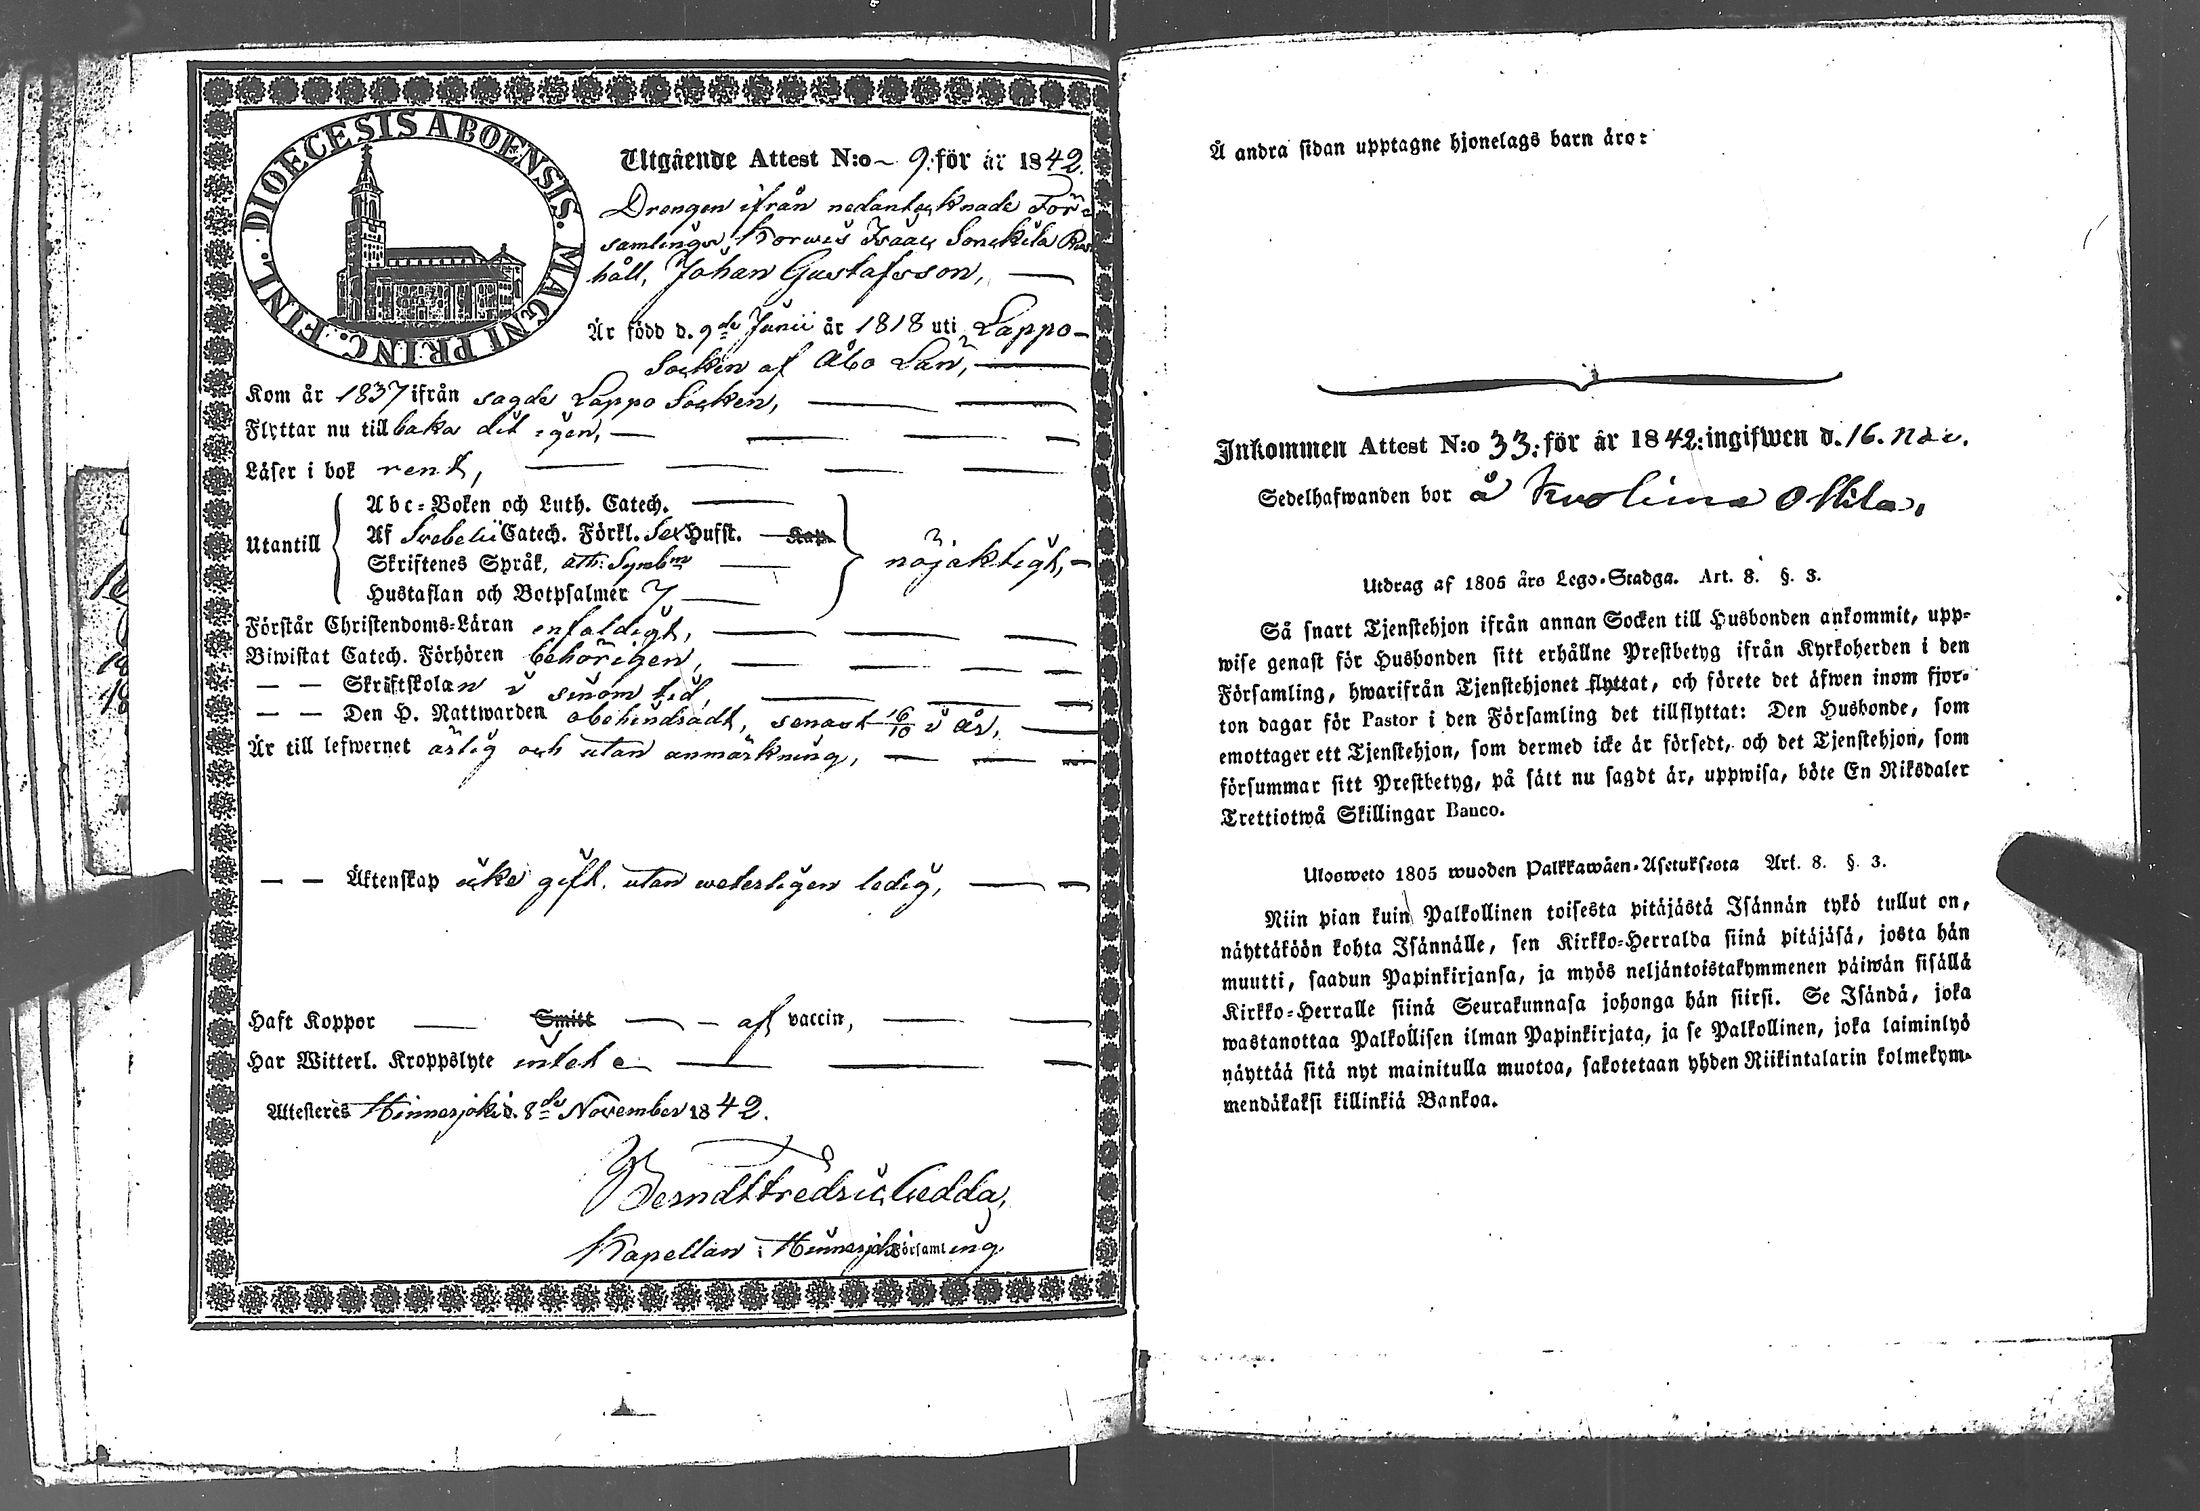 DIOECESIS ABOENSIS. MAGNI PRINC. FINL.
Utgående Attest N:o 9. för år 1842.
Drengen ifrån nedantecknade För-
samlings, Korwis Isaac Sonckila Rus-
håll, Johan Gustafsson,
Är född d. 9de Junii år 1818 uti Lappo
Socken af Åbo Län,
Kom år 1837 ifrån sagde Lappo Socken,
Flyttar nu tillbaka dit igen,
Läser i bok rent,
Abc-Boken och Luth. Catech.
Af Svebelii Catech. Förkl. Sex Hufst. Kap.
Utantill
Skriftenes Språk, Ath: Symb.m
nöjaktigt,
Hustaflan och Botpsalmer 7
Förstår Christendoms-Läran enfaldigt,
Biwistat Catech. Förhören behörigen,
— — Skriftskolan i sinom tid,
— — Den H. Nattwarden obehindradt, senast 16/10 i år,
Är till lefwernet ärlig och utan anmärkning,
— — Äktenskap icke gift, utan weterligen ledig,
Haft Koppor — Smitt — af vaccin,
Har Witterl. Kroppslyte intet
Attesteres Hinnerjoki d. 8de November 1842.
Berndt Fredric Gedda,
Kapellan i Hinnerjoki Församling.
Å andra sidan upptagne hjonelags barn äro:
Inkommen Attest N:o 33. för år 1842. ingifwen d. 16. Nov.
Sedelhafwanden bor å Kvolima Ollila,
Utdrag af 1805 års Lego-Stadga. Art. 8. §. 3.
Så snart Tjenstehjon ifrån annan Socken till Husbonden ankommit, upp-
wise genast för Husbonden sitt erhållne Prestbetyg ifrån Kyrkoherden i den
Församling, hwarifrån Tjenstehjonet flyttat, och förete det äfwen inom fjor-
ton dagar för Pastor i den Församling det tillflyttat: Den Husbonde, som
emottager ett Tjenstehjon, som dermed icke är försedt, och det Tjenstehjon, som
försummar sitt Prestbetyg, på sätt nu sagdt är, uppwisa, böte En Riksdaler
Trettiotwå Skillingar Banco.
Ulosweto 1805 wuoden Palkkawäen-Asetuksesta Art. 8. §. 3.
Niin pian kuin Palkollinen toisesta pitäjästä Isännän tykö tullut on,
näyttäköön kohta Isännälle, sen Kirkko-Herralda siinä pitäjäsä, josta hän
muutti, saadun Papinkirjansa, ja myös neljäntoistakymmenen päiwän sisällä
Kirkko-Herralle siinä Seurakunnasa johonga hän siirsi. Se Isändä, joka
wastanottaa Palkollisen ilman Papinkirjata, ja se Palkollinen, joka laiminlyö
näyttää sitä nyt mainitulla muotoa, sakotetaan yhden Riikintalarin kolmekym-
mendäkaksi killinkiä Bankoa.